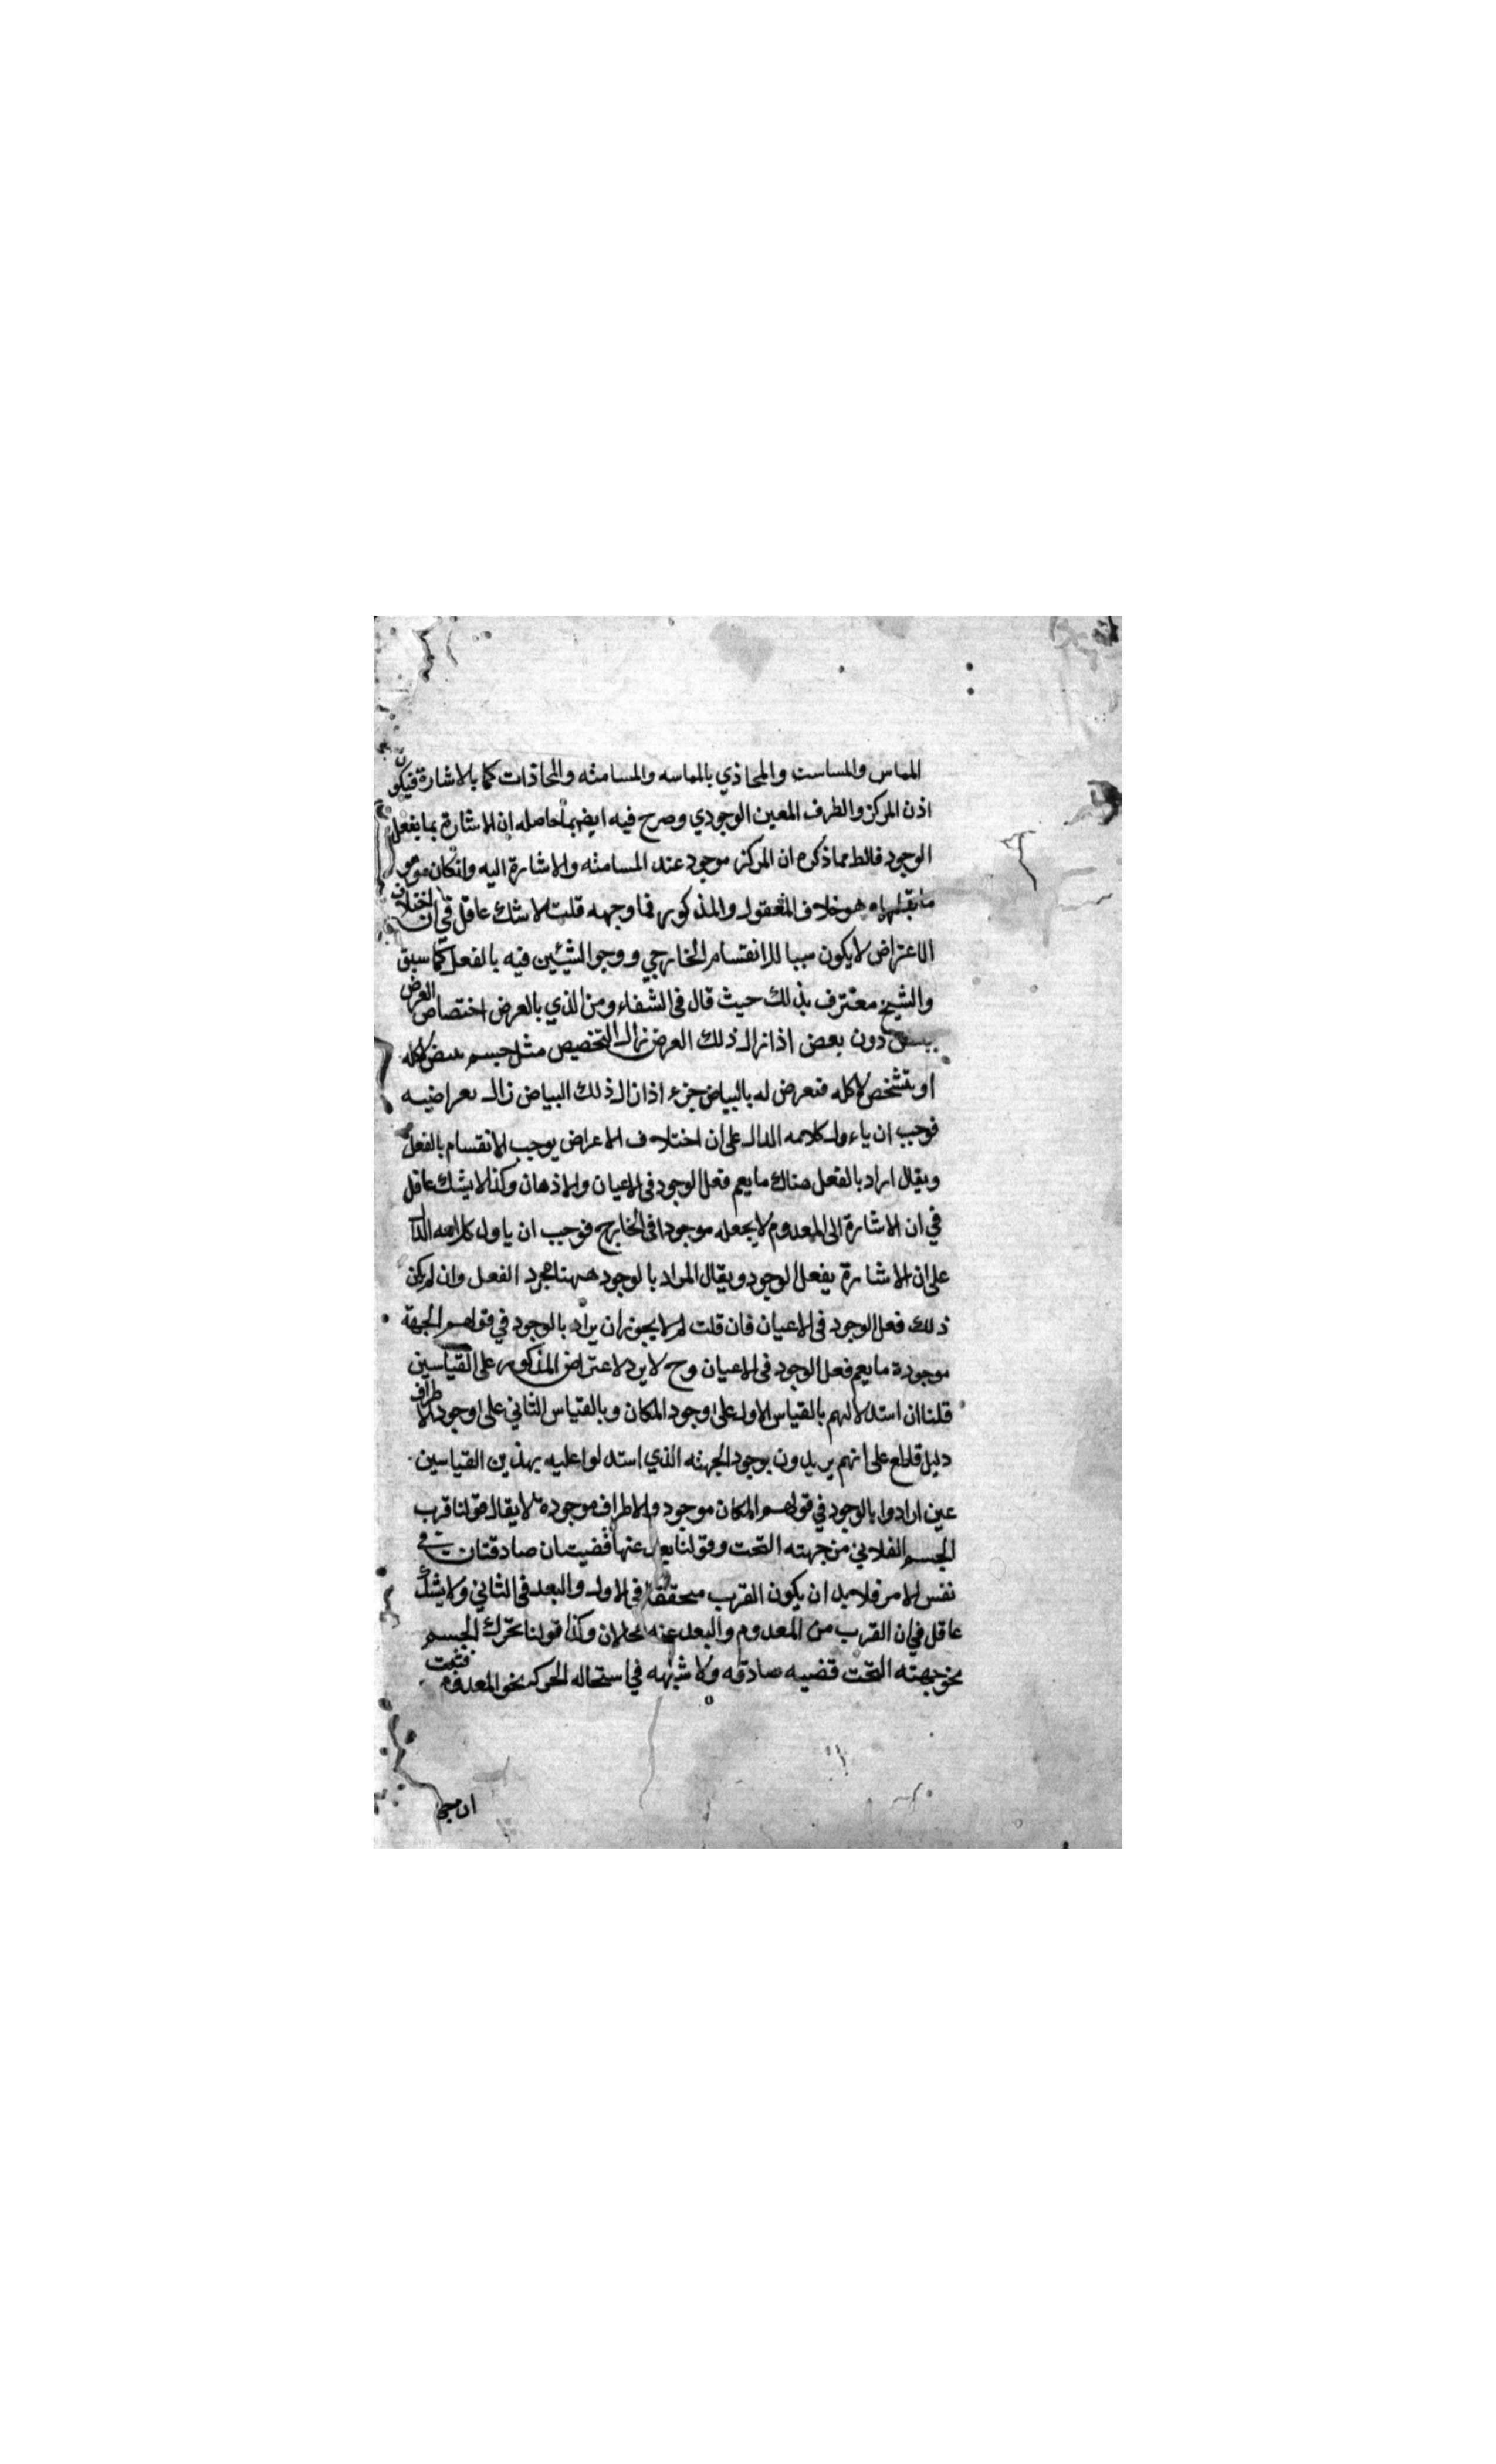 المماس والمسامت والمحاذي بالمماسه والمسامته والمحاذات كما بالاشارة فيكون
اذن المركز والطرف المعين الوجودي وصرح فيه ايضا بما حاصله ان الاشارة بما يفعل
الوجود فالظ مما ذكره ان المركز موجود عند المسامته والاشارة اليه وانكان
هو خلاف المعقول والمذكور فما وجهه قلت لا شك عاقل في ان اختلاف
الاعتراض لا يكون سببا للانقسام الخارجي ووجوا الشيئين فيه بالفعل كما سبق
والشيخ معترف بذلك حيث قال فى الشفاء ومن الذي بالعرض اختصاص العرض
ببعض دون بعض اذا زال ذلك العرض زال التخصيص مثل جسم يبيض لا كله
او يتشخص لا كله فيعرض له بالبياض جزء اذا زال ذلك البياض زال
فوجب ان ياءول كلامه الدال على ان اختلاف الاعراض يوجب الانقسام بالفعل
ويقال اراد بالفعل هناك ما يعم فعل الوجود فى الاعيان والاذهان وكذا لا يشك عاقل
في ان الاشارة الى المعدوم لا يجعله موجودا فى الخارج فوجب ان ياول كلامه الدال
على ان الاشارة يفعل الوجود ويقال المراد بالوجود ههنا مجرد الفعل وان لم يكن
ذلك فعل الوجود فى الاعيان فان قلت لم لا يجوز ان يراد بالوجود في قولهم الجهة
موجودة ما يعم فعل الوجود فى الاعيان وح لا يرد الاعتراض المذكور على القياسين
قلنا ان استدلالهم بالقياس الاول على وجود المكان وبالقياس الثاني على وجود الاطراف
دليل قاطع على انهم يريدون بوجود الجهته الذي استدلوا عليه بهذين القياسين
عين ارادوا بالوجود في قولهم المكان موجود والاطراف موجودة لا يقال قولنا قرب
الجسم الفلاني من جهته التحت وقولنا بعد عنها قضيتان صادقتان في
نفس الامر فلا بد ان يكون القرب متحققا فى الاول والبعد فى الثاني ولا يشك
عاقل في ان القرب من المعدوم والبعد عنه محالان وكذا قولنا تحرك الجسم
نحو جهته التحت قضيه صادقه ولا شبهه في استحاله الحركه نحو المعدوم فثبت
ان